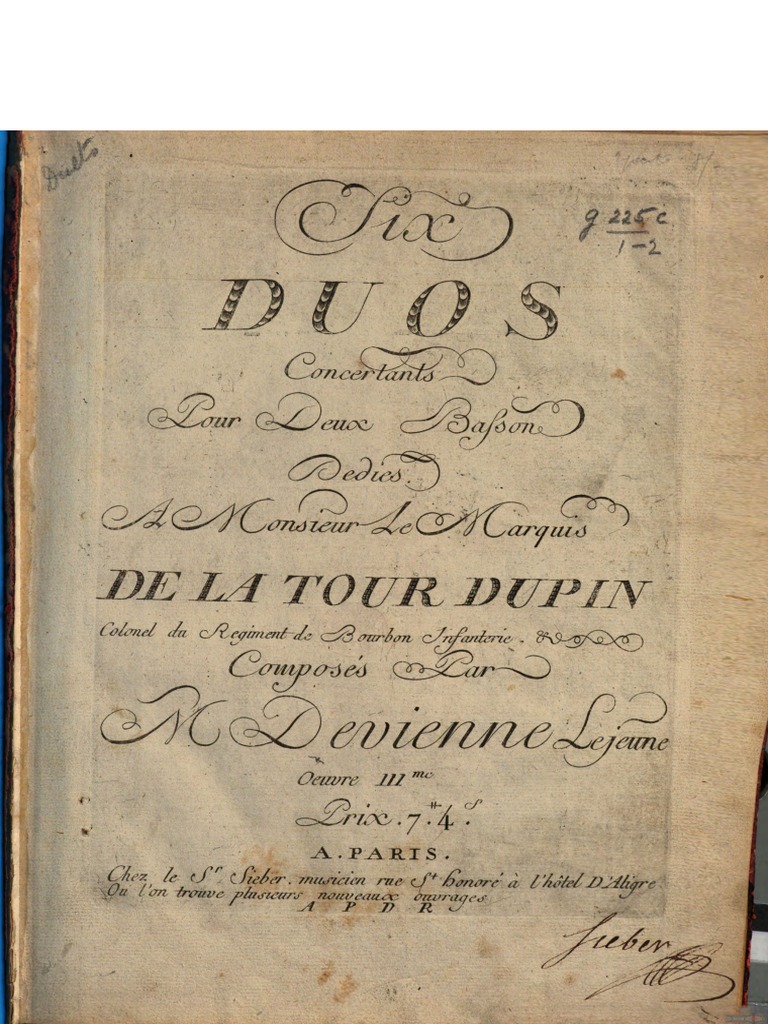 Duets
g 225 c
1-2
Six
DUOS
Concertants
Pour Deux Basson
Dedies.
A Monsieur Le Marquis
DE LA TOUR DUPIN
Colonel du Regiment de Bourbon Infanterie.
Composés Par
M Devienne Lejeune
Oeuvre III.me
Prix. 7.# 4.s
A. PARIS.
Chez le Sr. Sieber. musicien rue St honoré à l'hôtel D'Aligre
Ou l'on trouve plusieurs nouveaux ouvrages
A P D R
Sieber